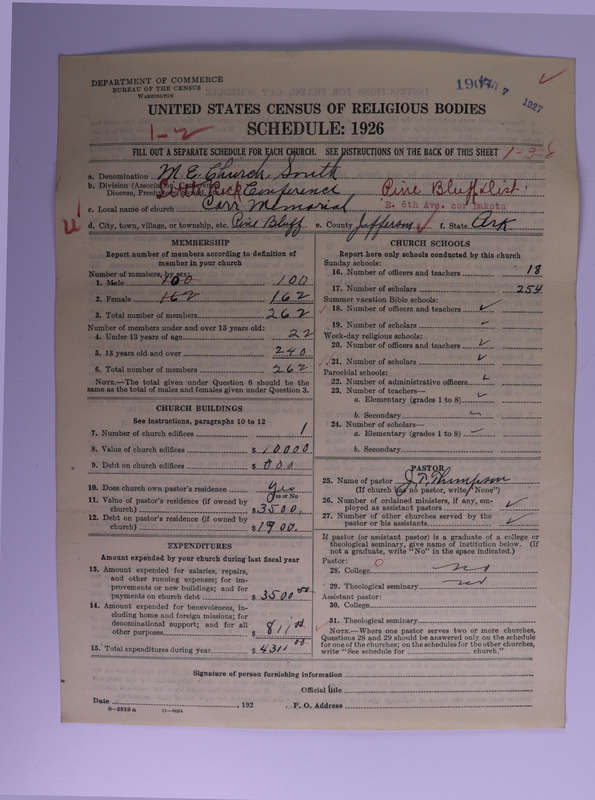 DEPARTMENT OF COMMERCE
BUREAU OF THE CENSUS
WASHINGTON
1927
UNITED STATES CENSUS OF RELIGIOUS BODIES
1-2
SCHEDULE: 1926
FILL OUT A SEPARATE SCHEDULE FOR EACH CHURCH. SEE INSTRUCTIONS ON THE BACK OF THIS SHEET 1-3-6
a. Denomination M. E. Church South
b. Division (Association, Conference,
Diocese, Little Rock Conference Pine Bluff Dist.
c. Local name of church Carr Memorial E. 6th Ave. cor Dakota
d. City, town, village, or township, etc. Pine Bluff e. County Jefferson f. State Ark
MEMBERSHIP
Report number of members according to definition of
member in your church
Number of members, by sex:
1. Male 100 100
2. Female 162 162
3. Total number of members 262
Number of members under and over 13 years old:
4. Under 13 years of age 22
5. 13 years old and over 240
6. Total number of members 262
NOTE.—The total given under Question 6 should be the
same as the total of males and females given under Question 3.
CHURCH BUILDINGS
See instructions, paragraphs 10 to 12
7. Number of church edifices 1
8. Value of church edifices $ 10000
9. Debt on church edifices $ 000
10. Does church own pastor's residence yes
Yes or No
11. Value of pastor's residence (if owned by
church) $ 3500.
12. Debt on pastor's residence (if owned by
church) $ 1900.
EXPENDITURES
Amount expended by your church during last fiscal year
13. Amount expended for salaries, repairs,
and other running expenses; for im-
provements or new buildings; and for
payments on church debt $ 3500 00
14. Amount expended for benevolences, in-
cluding home and foreign missions; for
denominational support; and for all
other purposes $ 811 00
15. Total expenditures during year $ 4311 00
CHURCH SCHOOLS
Report here only schools conducted by this church
Sunday schools:
16. Number of officers and teachers 18
17. Number of scholars 254
Summer vacation Bible schools:
18. Number of officers and teachers
19. Number of scholars
Week-day religious schools:
20. Number of officers and teachers
21. Number of scholars
Parochial schools:
22. Number of administrative officers
23. Number of teachers—
a. Elementary (grades 1 to 8)
b. Secondary
24. Number of scholars—
a. Elementary (grades 1 to 8)
b. Secondary
PASTOR
25. Name of pastor J. D. Thompson
(If church has no pastor, write "None")
26. Number of ordained ministers, if any, em-
ployed as assistant pastors
27. Number of other churches served by the
pastor or his assistants
If pastor (or assistant pastor) is a graduate of a college or
theological seminary, give name of institution below. (If
not a graduate, write "No" in the space indicated.)
Pastor:
28. College no
29. Theological seminary no
Assistant pastor:
30. College
31. Theological seminary
NOTE.—Where one pastor serves two or more churches,
Questions 28 and 29 should be answered only on the schedule
for one of the churches; on the schedules for the other churches,
write "See schedule for church."
Signature of person furnishing information
Official title
Date , 192 . P. O. Address
8-3813a 11-9054